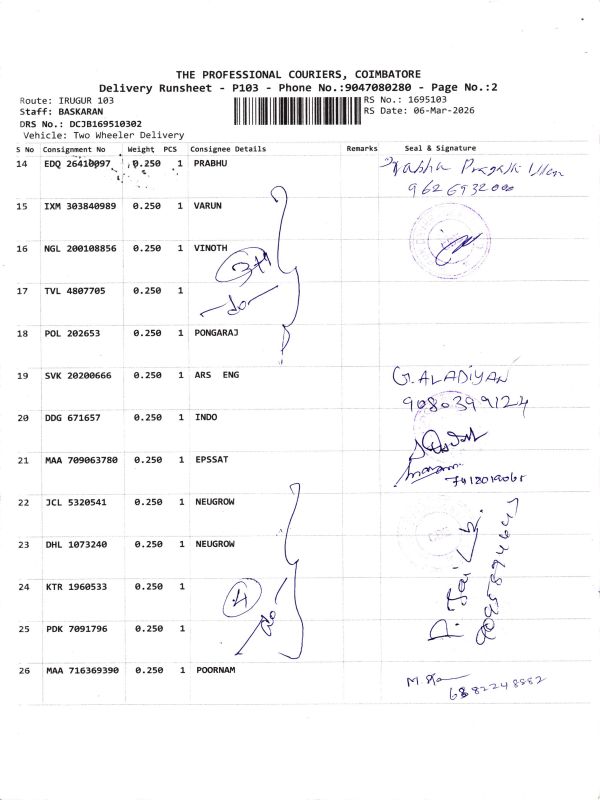 THE PROFESSIONAL COURIERS, COIMBATORE
Delivery Runsheet - P103 - Phone No.:9047080280 - Page No.:2
Route: IRUGUR 103
RS No.: 1695103
Staff: BASKARAN
RS Date: 06-Mar-2026
DRS No.: DCJB169510302
Vehicle: Two Wheeler Delivery
S No Consignment No Weight PCS Consignee Details Remarks Seal & Signature
14 EDQ 26410097 0.250 1 PRABHU
9626932000
15 IXM 303840989 0.250 1 VARUN
16 NGL 200108856 0.250 1 VINOTH
17 TVL 4807705 0.250 1
-do-
18 POL 202653 0.250 1 PONGARAJ
19 SVK 20200666 0.250 1 ARS ENG
G.ALADIYAN
9080399124
20 DDG 671657 0.250 1 INDO
21 MAA 709063780 0.250 1 EPSSAT
22 JCL 5320541 0.250 1 NEUGROW
23 DHL 1073240 0.250 1 NEUGROW
24 KTR 1960533 0.250 1
4
-do-
25 PDK 7091796 0.250 1
26 MAA 716369390 0.250 1 POORNAM
6382248882